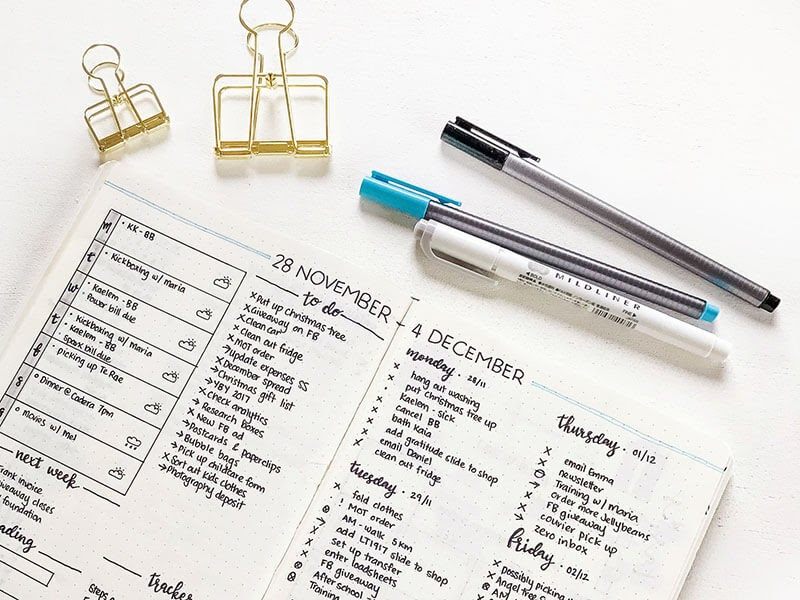 28 NOVEMBER -
4 DECEMBER
m
• KK - BB
t
• Kickboxing w/ maria
w
• Kaelem - BB
• Power bill due
t
• Kickboxing w/ maria
• Kaelem - BB
• Spark bill due
f
• picking up Te Rae
s
o Dinner @ Cadera 7pm
s
o movies w/ Mel
next week
invoice
giveaway closes
foundation
tracker
to do
x Put up christmas tree
x Giveaway on FB
x clean car!
x clean out fridge
x MOT order
→ Update expenses
x December spread
→ Christmas gift list
→ YBY 2017
x Check analytics
→ Research Boxes
x New FB ad
→ Postcards & paperclips
→ Bubble bags
→ Pick up childcare form
x Sort out kids clothes
→ Photography deposit
monday • 28/11
x hang out washing
x put christmas tree up
x Kaelem - sick
x cancel BB
x bath Kaia
x add gratitude slide to shop
x email Daniel
x clean out fridge
tuesday • 29/11
fold clothes
MOT order
AM - walk 5km
add LT1917 slide to shop
set up transfer
enter loadsheets
FB giveaway
After school -
Training
thursday • 01/12
email Emma
newsletter
Training w/ maria
order more Jellybeans
FB giveaway
courier pick up
zero inbox
friday • 02/12
Possibly picking
Angel tree
AM
MILDLINER
BOLD
FINE